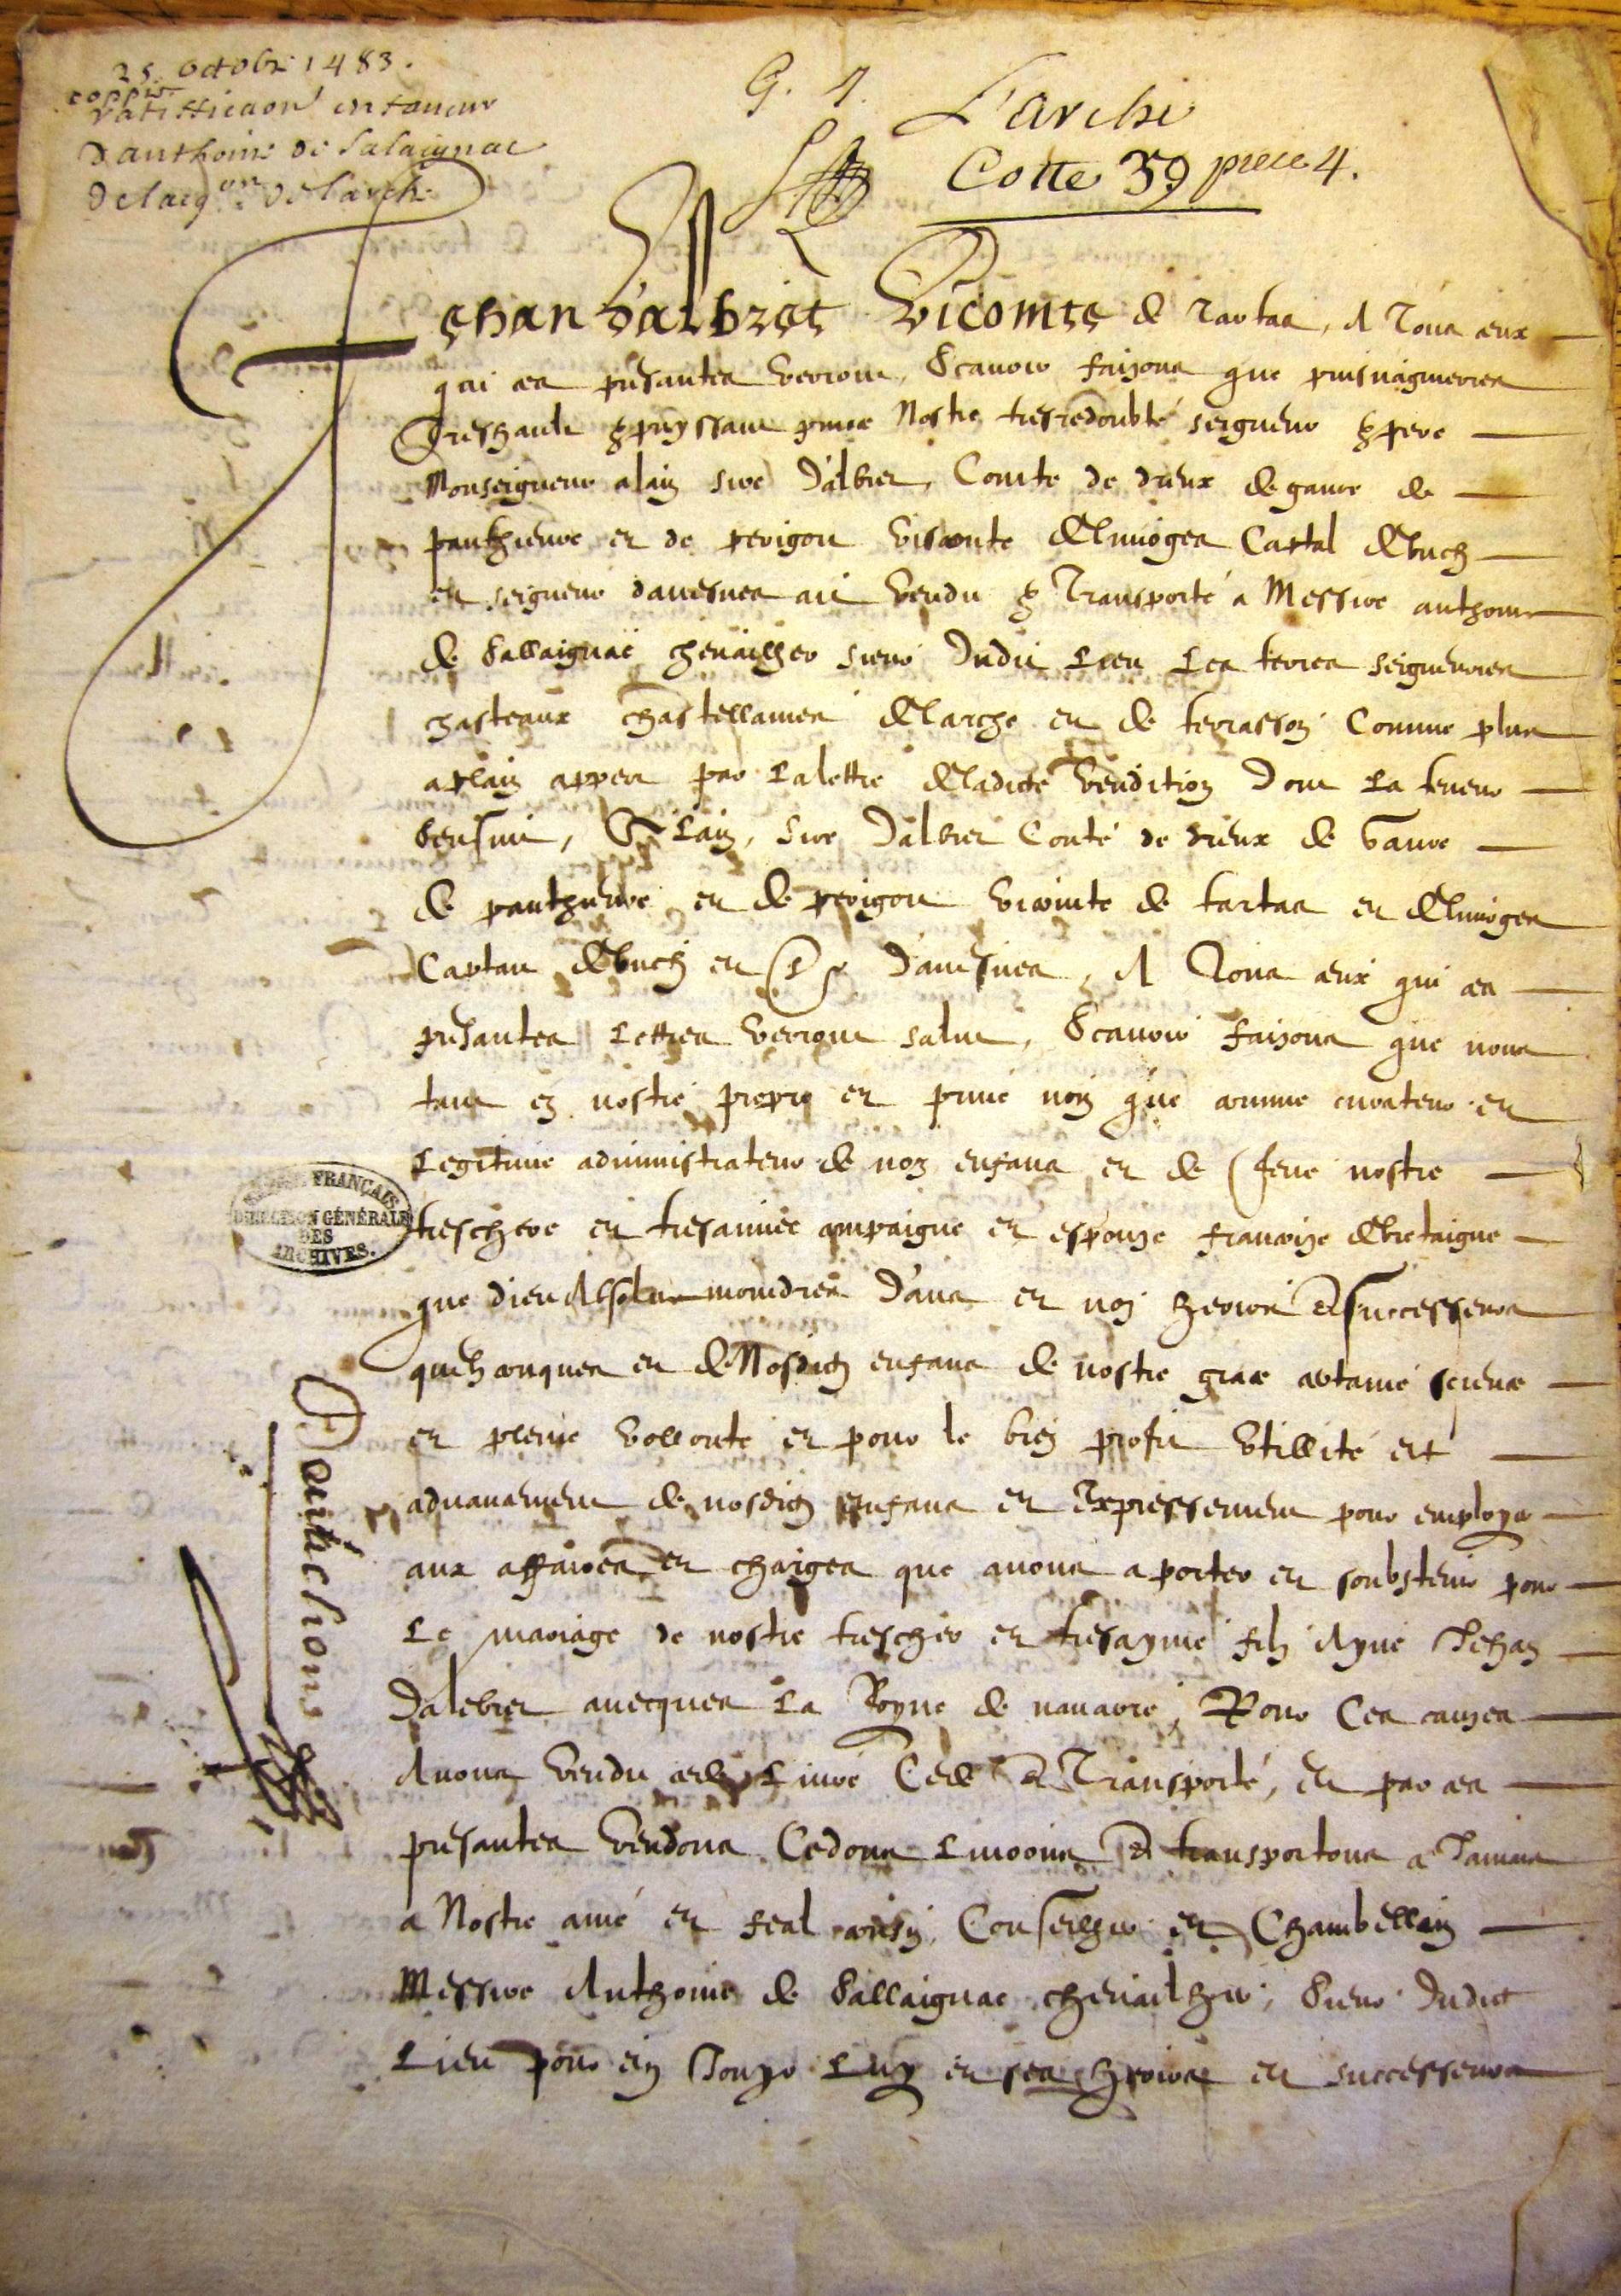 25. octobre 1483.
coppie
ratifficaon en faueur
d'anthoine de salaignac
de lacqon de larche
G. 4.
Larche
Cotte 39 piece 4.
Jehan d'albret Vicomte de Tartas, A Tous ceux
qui ces presantes verront, Scauoir faisons que puisnaguierres
Treshault & puyssant prince Nostre tresredoubté seigneur & pere
Monseigneur alain sire d'albret, Comte de dreux de gaure de
panthieure et de perigort viscomte de limoges Captal de buch
et seigneur d'auesnes ait vendu & Transporté a Messire anthoine
de Sallaignac cheuailher sieur dudit Lieu Les terres seigneuries
chasteaux chastellanies de larche et de terrasson Comme plus
aplain appert par La lettre de ladicte vendition Dont La teneur
sensuit, Alain, sire D'albret Conte de dreux de Gaure
de panthieure et de perigort vicomte de tartas et de limoges
Captau de buch et Sr d'auesnes, A Tous ceux qui ces
presantes Lettres verront salut, Scauoir faisons que nous
tant en nostre propre et priué nom que comme curateur et
Legitime administrateur de noz enfans et de feue nostre
treschere et tresaimée compaigne et espouze francoize de bretaigne
que dieu Absolue moindres d'ans et noz heoirs et successeurs
quelzconques et de Nosdictz enfans de nostre grace certaine scienœ
et pleine vollonté et pour le bien profit vtillité et
aduancement de nosdictz enfans et Expressement pour employer
aux affaires et charges que auons a porter et soubstenir pour
Le mariage de nostre trescher et tresaymé filz Ayné Jehan
Dalebret auecques La Royne de nauarre, Pour Ces causes
Auons vendu cedé Liuré Cedé et Transporté, et par ces
presantes Vendons Cedons Liurons et transportons a Jamais
a Nostre amé et feal cousin, Conseilher et Chambellan
Messire Anthoine de Sallaignac cheuailher, Sieur dudict
Lieu pour en Jouyr Luy et ses heoirs et successeurs
FRANÇAIS
DIRECTION GÉNÉRALE
DES
ARCHIVES.